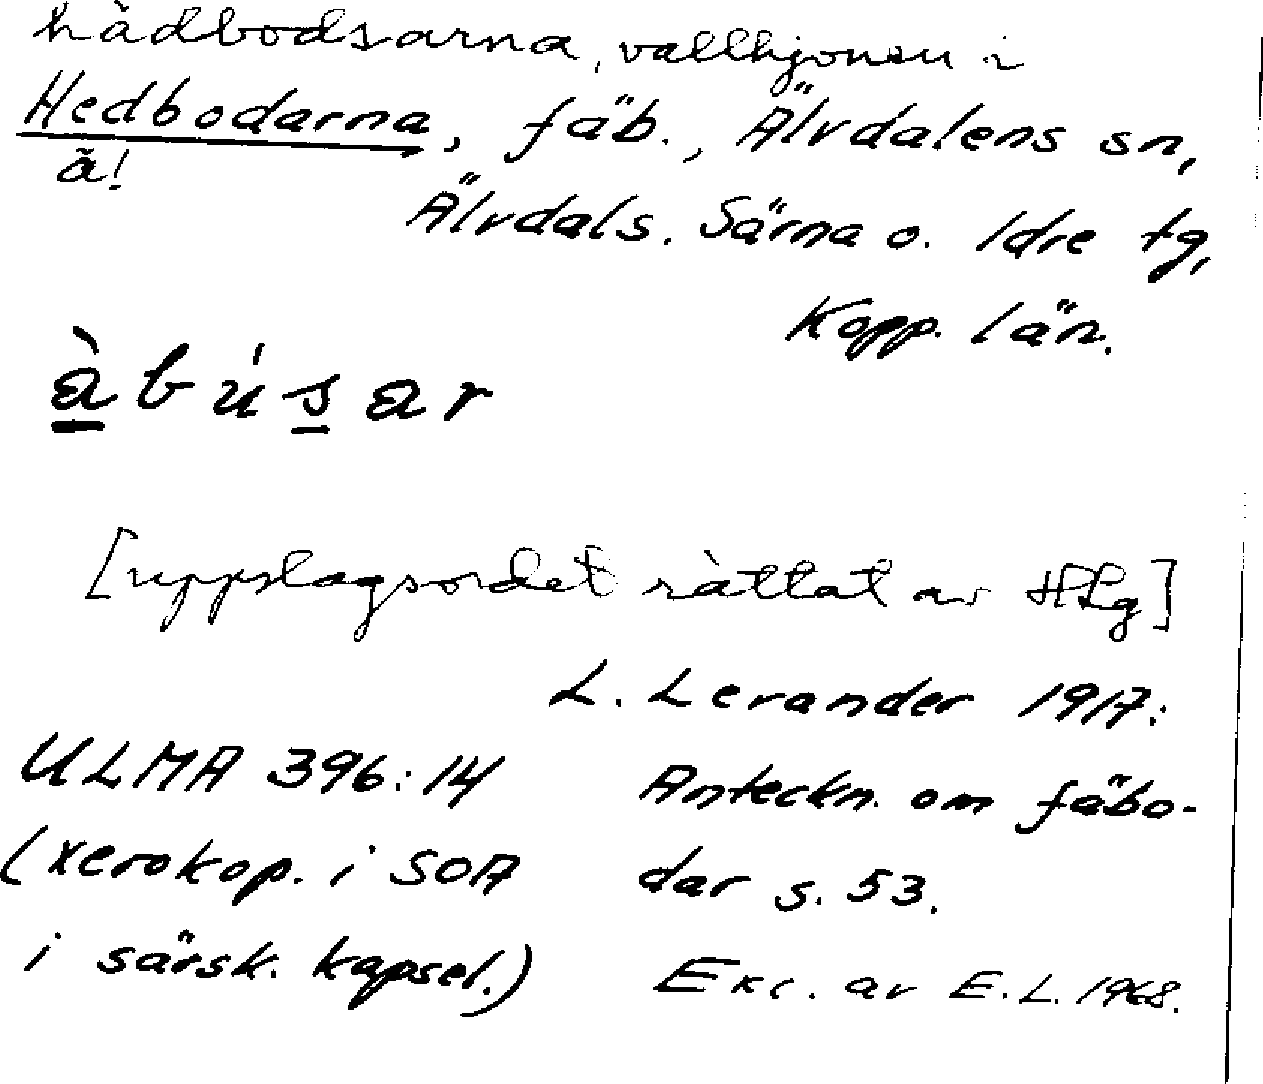 hàdbodsarna, vallhjonen i
Hedbodarna, fäb., Älvdalens sn,
ã!
Älvdals. Särna o. Idre tg,
Kopp. län.
àbúsar
[uppslagsordet rättat av HLg]
L. Levander 1917:
ULMA 396:14 Anteckn. om fäbo-
(xerokop. i SOA dar s. 53.
i särsk. kapsel.) Exc. av E.L. 1968.